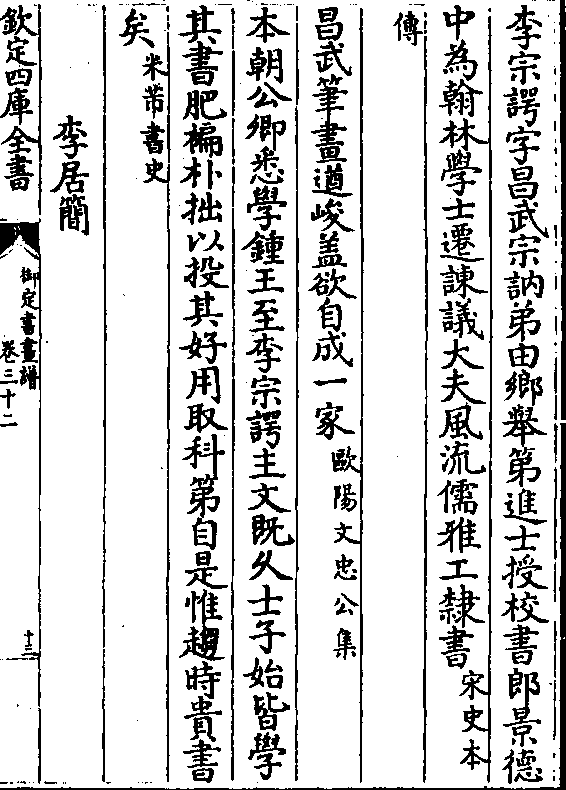 李宗諤字昌武宗訥弟由鄉舉第進士授校書郎景德
中為翰林學士遷諫議大夫風流儒雅工隸書宋史本
傳
昌武筆畫遒峻盖欲自成一家歐陽文忠公集
本朝公卿悉學鍾王至李宗諤主文既乆士子始皆學
其書肥褊朴拙以投其好用取科第自是惟趨時貴書
矣米芾書史
李居簡
欽定四庫全書
御定書畫譜
卷三十二
十三